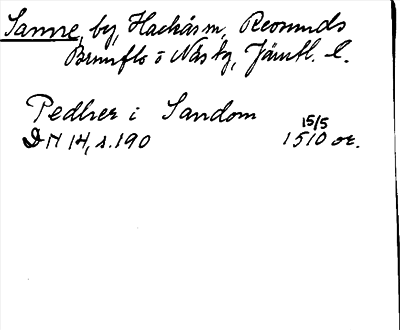 Sanne, by, Hackås sn, Revsunds
Brunflo o Näs tg, Jämtl. l.
Pedher i Sandom 15/5
DN 14, s. 190 1510 or.